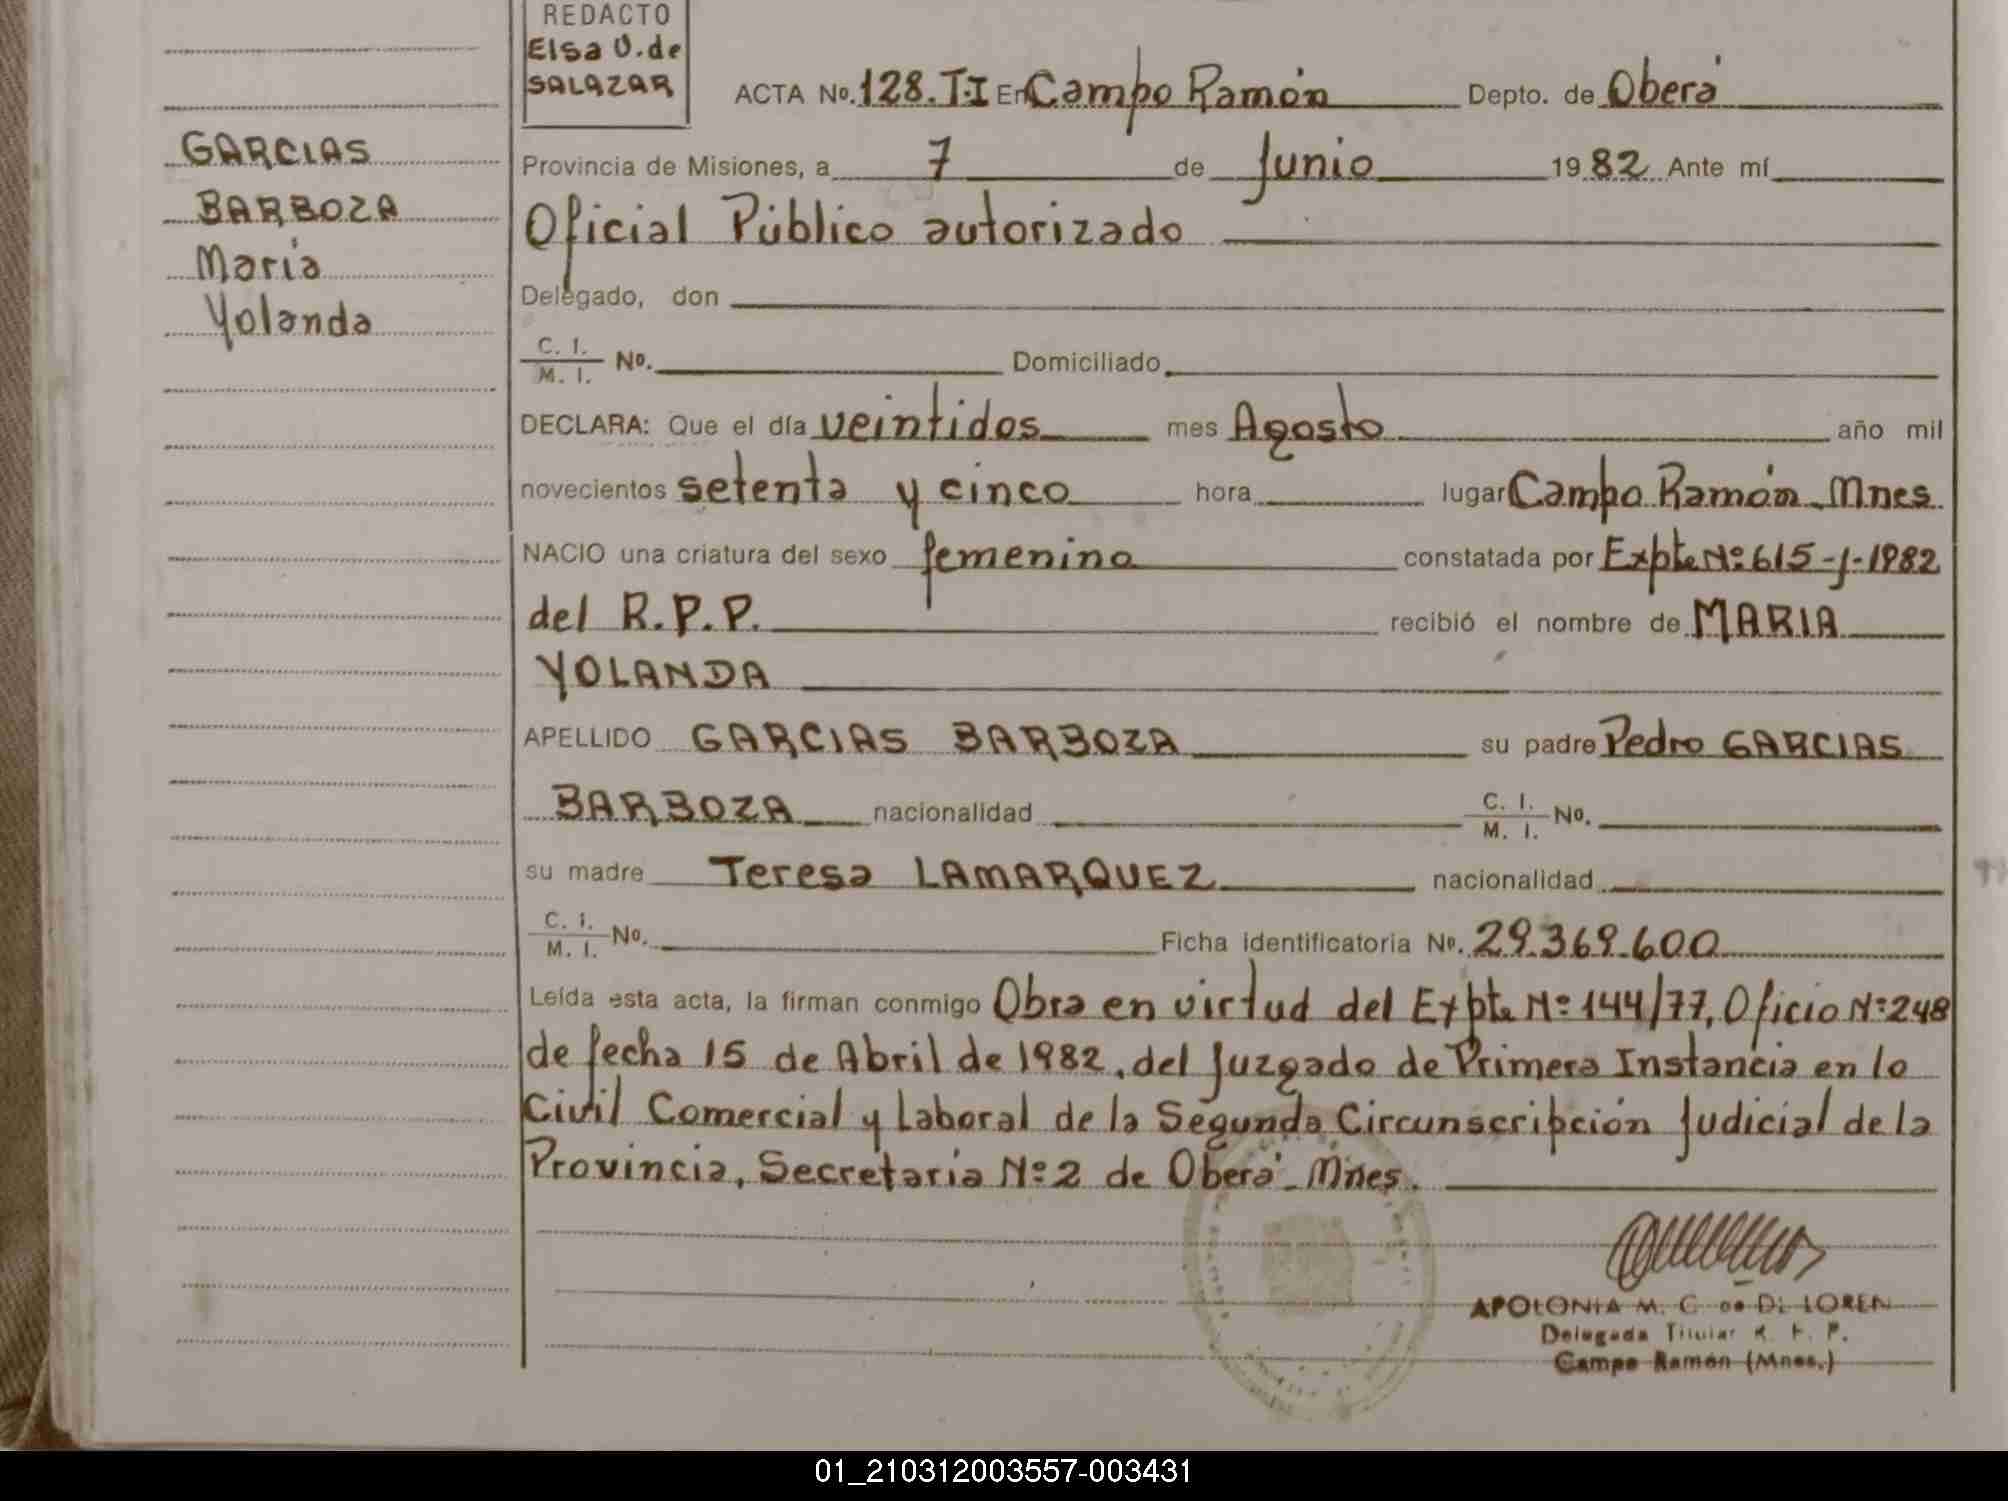 REDACTO
Elsa V. de
SALAZAR
GARCIAS
BARBOZA
Maria
Yolanda
ACTA No. 128. T.I En Campo Ramón Depto. de Oberá
Provincia de Misiones, a 7 de Junio 1982 Ante mí
Oficial Público autorizado
Delegado, don
C. I. / M. I. No. Domiciliado
DECLARA: Que el día veintidos mes Agosto año mil
novecientos setenta y cinco hora lugar Campo Ramón Mnes
NACIO una criatura del sexo femenino constatada por Expte Nº 615-J-1982
del R.P.P. recibió el nombre de MARIA
YOLANDA
APELLIDO GARCIAS BARBOZA su padre Pedro GARCIAS
BARBOZA nacionalidad C. I. / M. I. No.
su madre Teresa LAMARQUEZ nacionalidad
C. I. / M. I. No. Ficha identificatoria No. 29.369.600
Leída esta acta, la firman conmigo Obra en virtud del Expte Nº 144/77, Oficio Nº 248
de fecha 15 de Abril de 1982, del Juzgado de Primera Instancia en lo
Civil Comercial y Laboral de la Segunda Circunscripción Judicial de la
Provincia, Secretaria Nº 2 de Oberá - Mnes.
APOLONIA M. C. de DI LOREN
Delegada Titular R. P. P.
Campo Ramón (Mnes.)
01_210312003557-003431